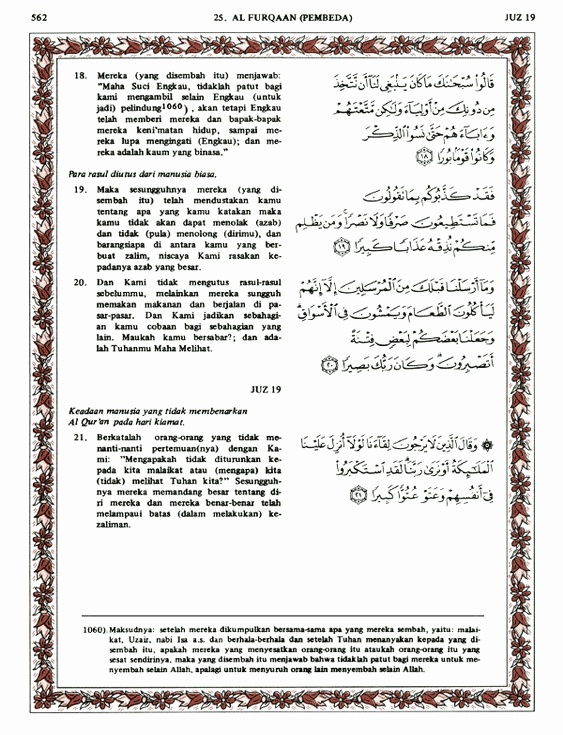 562 25. AL FURQAAN (PEMBEDA) JUZ 19
18. Mereka (yang disembah itu) menjawab:
"Maha Suci Engkau, tidaklah patut bagi
kami mengambil selain Engkau (untuk
jadi) pelindung1060) , akan tetapi Engkau
telah memberi mereka dan bapak-bapak
mereka keni'matan hidup, sampai me-
reka lupa mengingati (Engkau); dan me-
reka adalah kaum yang binasa."
قَالُوا سُبْحَنَكَ مَا كَانَ يَنْبَغِى لَنَا أَنْ نَتَّخِذَ
مِنْ دُونِكَ مِنْ أَوْلِيَاءَ وَلَكِنْ مَتَّعْتَهُمْ
وَءَابَاءَهُمْ حَتَّى نَسُوا الذِّكْرَ
وَكَانُوا قَوْمًا بُورًا ١٨
Para rasul diutus dari manusia biasa.
19. Maka sesungguhnya mereka (yang di-
sembah itu) telah mendustakan kamu
tentang apa yang kamu katakan maka
kamu tidak akan dapat menolak (azab)
dan tidak (pula) menolong (dirimu), dan
barangsiapa di antara kamu yang ber-
buat zalim, niscaya Kami rasakan ke-
padanya azab yang besar.
فَقَدْ كَذَّبُوكُمْ بِمَا تَقُولُونَ
فَمَا تَسْتَطِيعُونَ صَرْفًا وَلَا نَصْرًا وَمَنْ يَظْلِمْ
مِنْكُمْ نُذِقْهُ عَذَابًا كَبِيرًا ١٩
20. Dan Kami tidak mengutus rasul-rasul
sebelummu, melainkan mereka sungguh
memakan makanan dan berjalan di pa-
sar-pasar. Dan Kami jadikan sebahagi-
an kamu cobaan bagi sebahagian yang
lain. Maukah kamu bersabar?; dan ada-
lah Tuhanmu Maha Melihat.
وَمَا أَرْسَلْنَا قَبْلَكَ مِنَ الْمُرْسَلِينَ إِلَّا إِنَّهُمْ
لَيَأْكُلُونَ الطَّعَامَ وَيَمْشُونَ فِى الْأَسْوَاقِ
وَجَعَلْنَا بَعْضَكُمْ لِبَعْضٍ فِتْنَةً
أَتَصْبِرُونَ وَكَانَ رَبُّكَ بَصِيرًا ٢٠
JUZ 19
Keadaan manusia yang tidak membenarkan
Al Qur'an pada hari kiamat.
21. Berkatalah orang-orang yang tidak me-
nanti-nanti pertemuan(nya) dengan Ka-
mi: "Mengapakah tidak diturunkan ke-
pada kita malaikat atau (mengapa) kita
(tidak) melihat Tuhan kita?" Sesungguh-
nya mereka memandang besar tentang di-
ri mereka dan mereka benar-benar telah
melampaui batas (dalam melakukan) ke-
zaliman.
وَقَالَ الَّذِينَ لَا يَرْجُونَ لِقَاءَنَا لَوْلَا أُنْزِلَ عَلَيْنَا
الْمَلَئِكَةُ أَوْ نَرَى رَبَّنَا لَقَدِ اسْتَكْبَرُوا
فِى أَنْفُسِهِمْ وَعَتَوْ عُتُوًّا كَبِيرًا ٢١
1060). Maksudnya: setelah mereka dikumpulkan bersama-sama apa yang mereka sembah, yaitu: malai-
kat, Uzair, nabi Isa a.s. dan berhala-berhala dan setelah Tuhan menanyakan kepada yang di-
sembah itu, apakah mereka yang menyesatkan orang-orang itu ataukah orang-orang itu yang
sesat sendirinya, maka yang disembah itu menjawab bahwa tidaklah patut bagi mereka untuk me-
nyembah selain Allah, apalagi untuk menyuruh orang lain menyembah selain Allah.